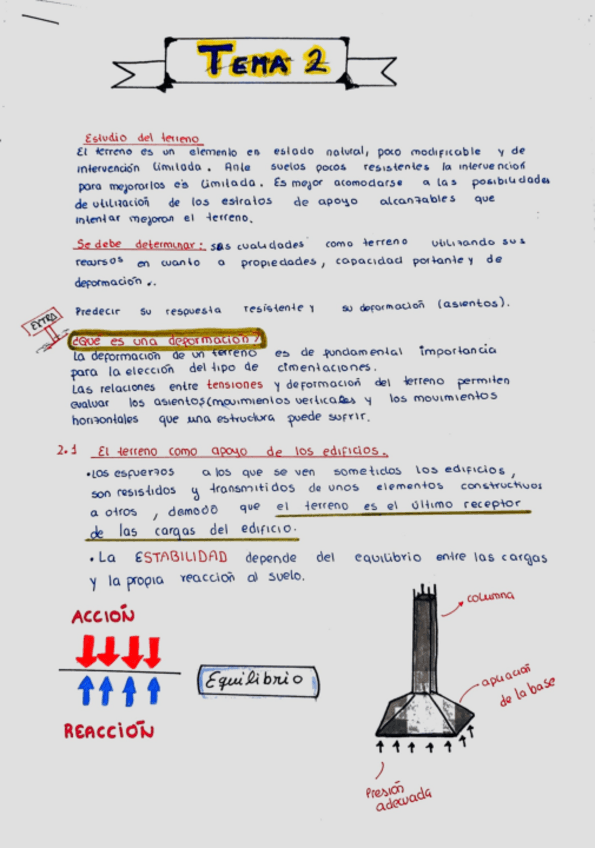 TEMA 2
Estudio del terreno
El terreno es un elemento en estado natural, poco modificable y de
intervención limitada. Ante suelos pocos resistentes la intervención
para mejorarlos es limitada. Es mejor acomodarse a las posibilidades
de utilización de los estratos de apoyo alcanzables que
intentar mejoran el terreno.
Se debe determinar: sus cualidades como terreno utilizando sus
recursos en cuanto a propiedades, capacidad portante y de
deformación.
Predecir su respuesta resistente y su deformación (asientos).
EXTRA
¿Qué es una deformación?
La deformación de un terreno es de fundamental importancia
para la elección del tipo de cimentaciones.
Las relaciones entre tensiones y deformación del terreno permiten
evaluar los asientos(movimientos verticales y los movimientos
horizontales que una estructura puede sufrir.
2.1 El terreno como apoyo de los edificios.
•Los esfuerzos a los que se ven sometidos los edificios,
son resistidos y transmitidos de unos elementos constructivos
a otros, demodo que el terreno es el último receptor
de las cargas del edificio.
•La ESTABILIDAD depende del equilibrio entre las cargas
y la propia reacción al suelo.
ACCIÓN
Equilibrio
REACCIÓN
columna
de la base
Presión
adecuada